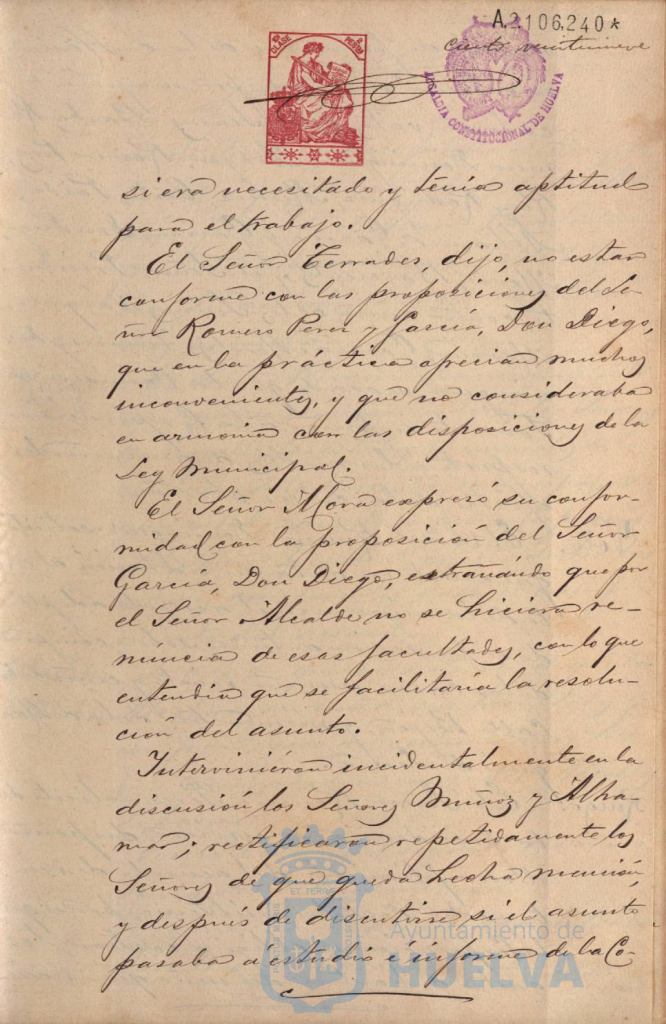 A.2106,240*
ciento veintinueve
10ª CLASE
2 PESETAS
ALCALDIA CONSTITUCIONAL DE HUELVA
si era necesitado y tenia aptitud
para el trabajo.
El Señor Terrades, dijo, no estar
conforme con las proposiciones del Se-
ñor Romero Perez y García, Don Diego,
que en la práctica ofrecian muchos
inconvenientes, y que no consideraba
en armonia con las disposiciones de la
Ley Municipal.
El Señor Mora expresó su confor-
midad con la proposición del Señor
García, Don Diego, estrañando que por
el Señor Alcalde no se hiciera re-
nuncia de esas facultades, con lo que
entendia que se facilitaría la resolu-
ción del asunto.
Intervinieron incidentalmente en la
discusión los Señores Muñoz y Alha-
mar; rectificaron repetidamente los
Señores de que queda hecha mención,
y después de discutirse si el asunto
pasaba á estudio é informe de la Co-
Ayuntamiento de
HUELVA